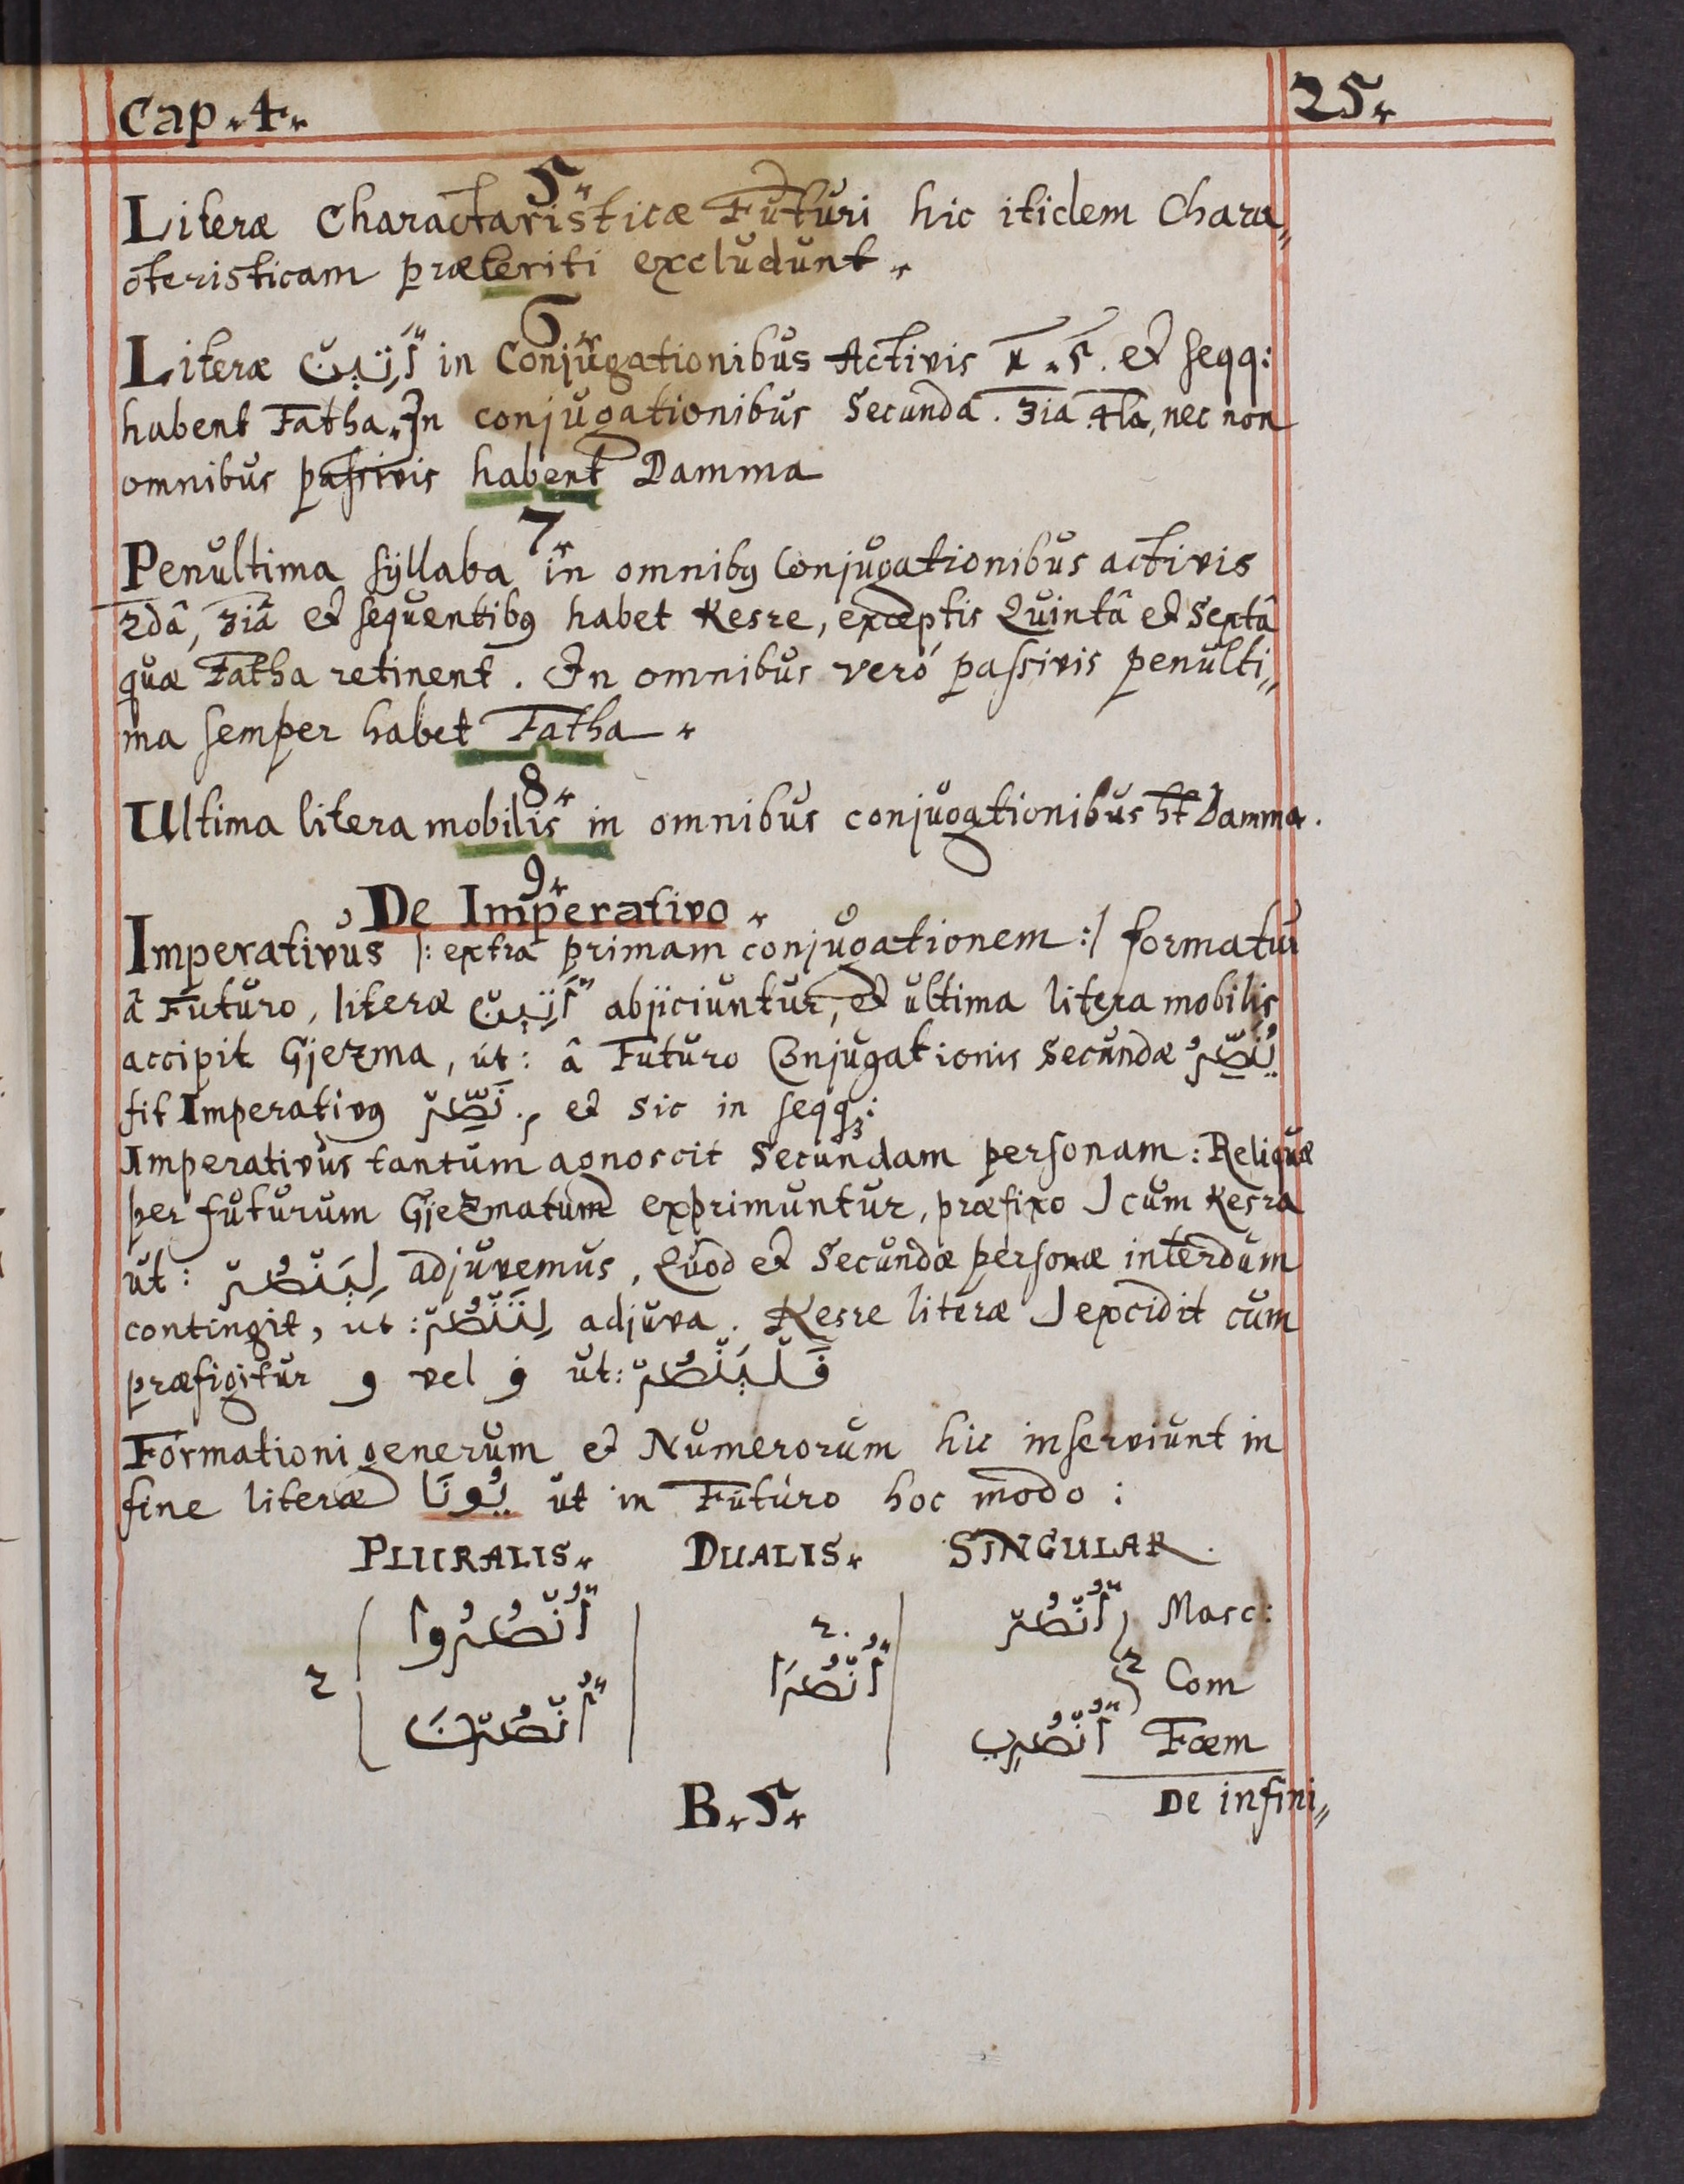 Cap. 4.
25.
5.
Literæ Charactaristicæ Futuri hic itidem Chara„
cteristicam præteriti excludunt.
6.
Literæ أَتَيْنَ in Conjugationibus Activis 1. 5. et seqq:
habent Fatha. In conjugationibus Secunda. 3ia 4ta, nec non
omnibus passivis habent Damma
7.
Penultima syllaba in omnibꝰ Conjugationibus activis
2dâ, 3iâ et sequentibꝰ habet Kesre, exceptis Quintâ et Sextâ
quæ Fatha retinent. In omnibus verò passivis penulti„
ma semper habet Fatha.
8.
Ultima litera mobilis in omnibus conjugationibus ht Damma.
9.
De Imperativo.
Imperativus |: extra primam conjugationem :| formatur
â Futuro, literæ أَتَيْنَ abjiciuntur, et ultima litera mobilis
accipit Gjezma, ut: â Futuro Conjugationis Secundæ يُنَصِّرُ
fit Imperativꝰ نَصِّرْ, et sic in seqq:
Imperativus tantum agnoscit Secundam personam: Reliquæ
per futurum Gjezmatum exprimuntur, præfixo ل cum Kesra
ut: لِيَنْصُرْ adjuvemus, Quod et Secundæ personæ interdum
contingit, ut: لِتَنْصُرْ adjuva. Kesre literæ ل excidit cum
præfigitur و vel ف ut: فَلْيَنْصُرْ
Formationi generum et Numerorum hic inserviunt in
fine literæ يُونَا ut in Futuro hoc modo:
PLURALIS. DUALIS. SINGULAR.
أُنْصُرُوا 2. أُنْصُرْ Masc:
2 أُنْصُرَا 2 Com
أُنْصُرْنَ أُنْصُرِي Fœm
B. 5. De infini„